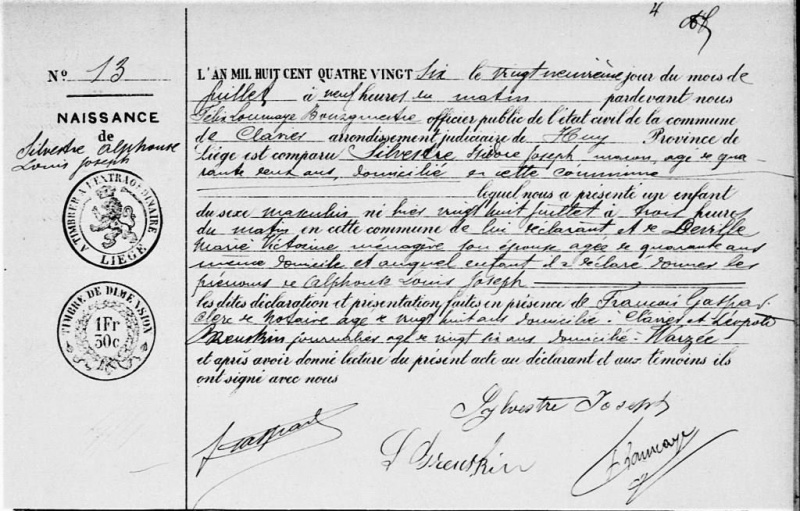 4
No 13
NAISSANCE
de
Silvestre Alphonse
Louis Joseph
A TIMBRER A L'EXTRAORDINAIRE
LIEGE
TIMBRE DE DIMENSION
1Fr
30c
L'AN MIL HUIT CENT QUATRE VINGT six le vingt neuvième jour du mois de
Juillet à neuf heures du matin pardevant nous
Loumaye Bourgmestre officier public de l'état civil de la commune
de Clavier arrondissement judiciaire de Huy Province de
Liége est comparu Silvestre Isidore Joseph, maçon, agé de qua-
rante deux ans, domicilié en cette commune
lequel nous a présenté un enfant
du sexe masculin, né hier vingt huit juillet à trois heures
du matin en cette commune de lui déclarant et de Deville
Marie Victoire ménagère son épouse agée de quarante ans
même domicile et auquel enfant il a déclaré donner les
prénoms de Alphonse Louis Joseph
les dites déclaration et présentation faites en présence de François Gaspar
clerc de Notaire agé de vingt huit ans domicilié à Clavier et Léopold
Dreuskin journalier agé de vingt six ans domicilié à Warzée
et après avoir donné lecture du présent acte au déclarant et aux témoins ils
ont signé avec nous
Sylvestre Joseph
F Gaspar
L Dreuskin
Loumaye